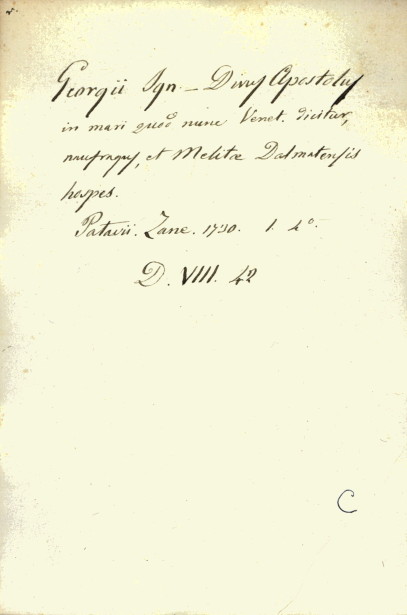 Georgii Ign. – Divus Apostolus
in mari quod nunc Venet. dicitur,
naufragus, et Melitæ Dalmatensis
hospes.
Patavii. Zane. 1730. 1. 4º.
D. VIII. 42
C